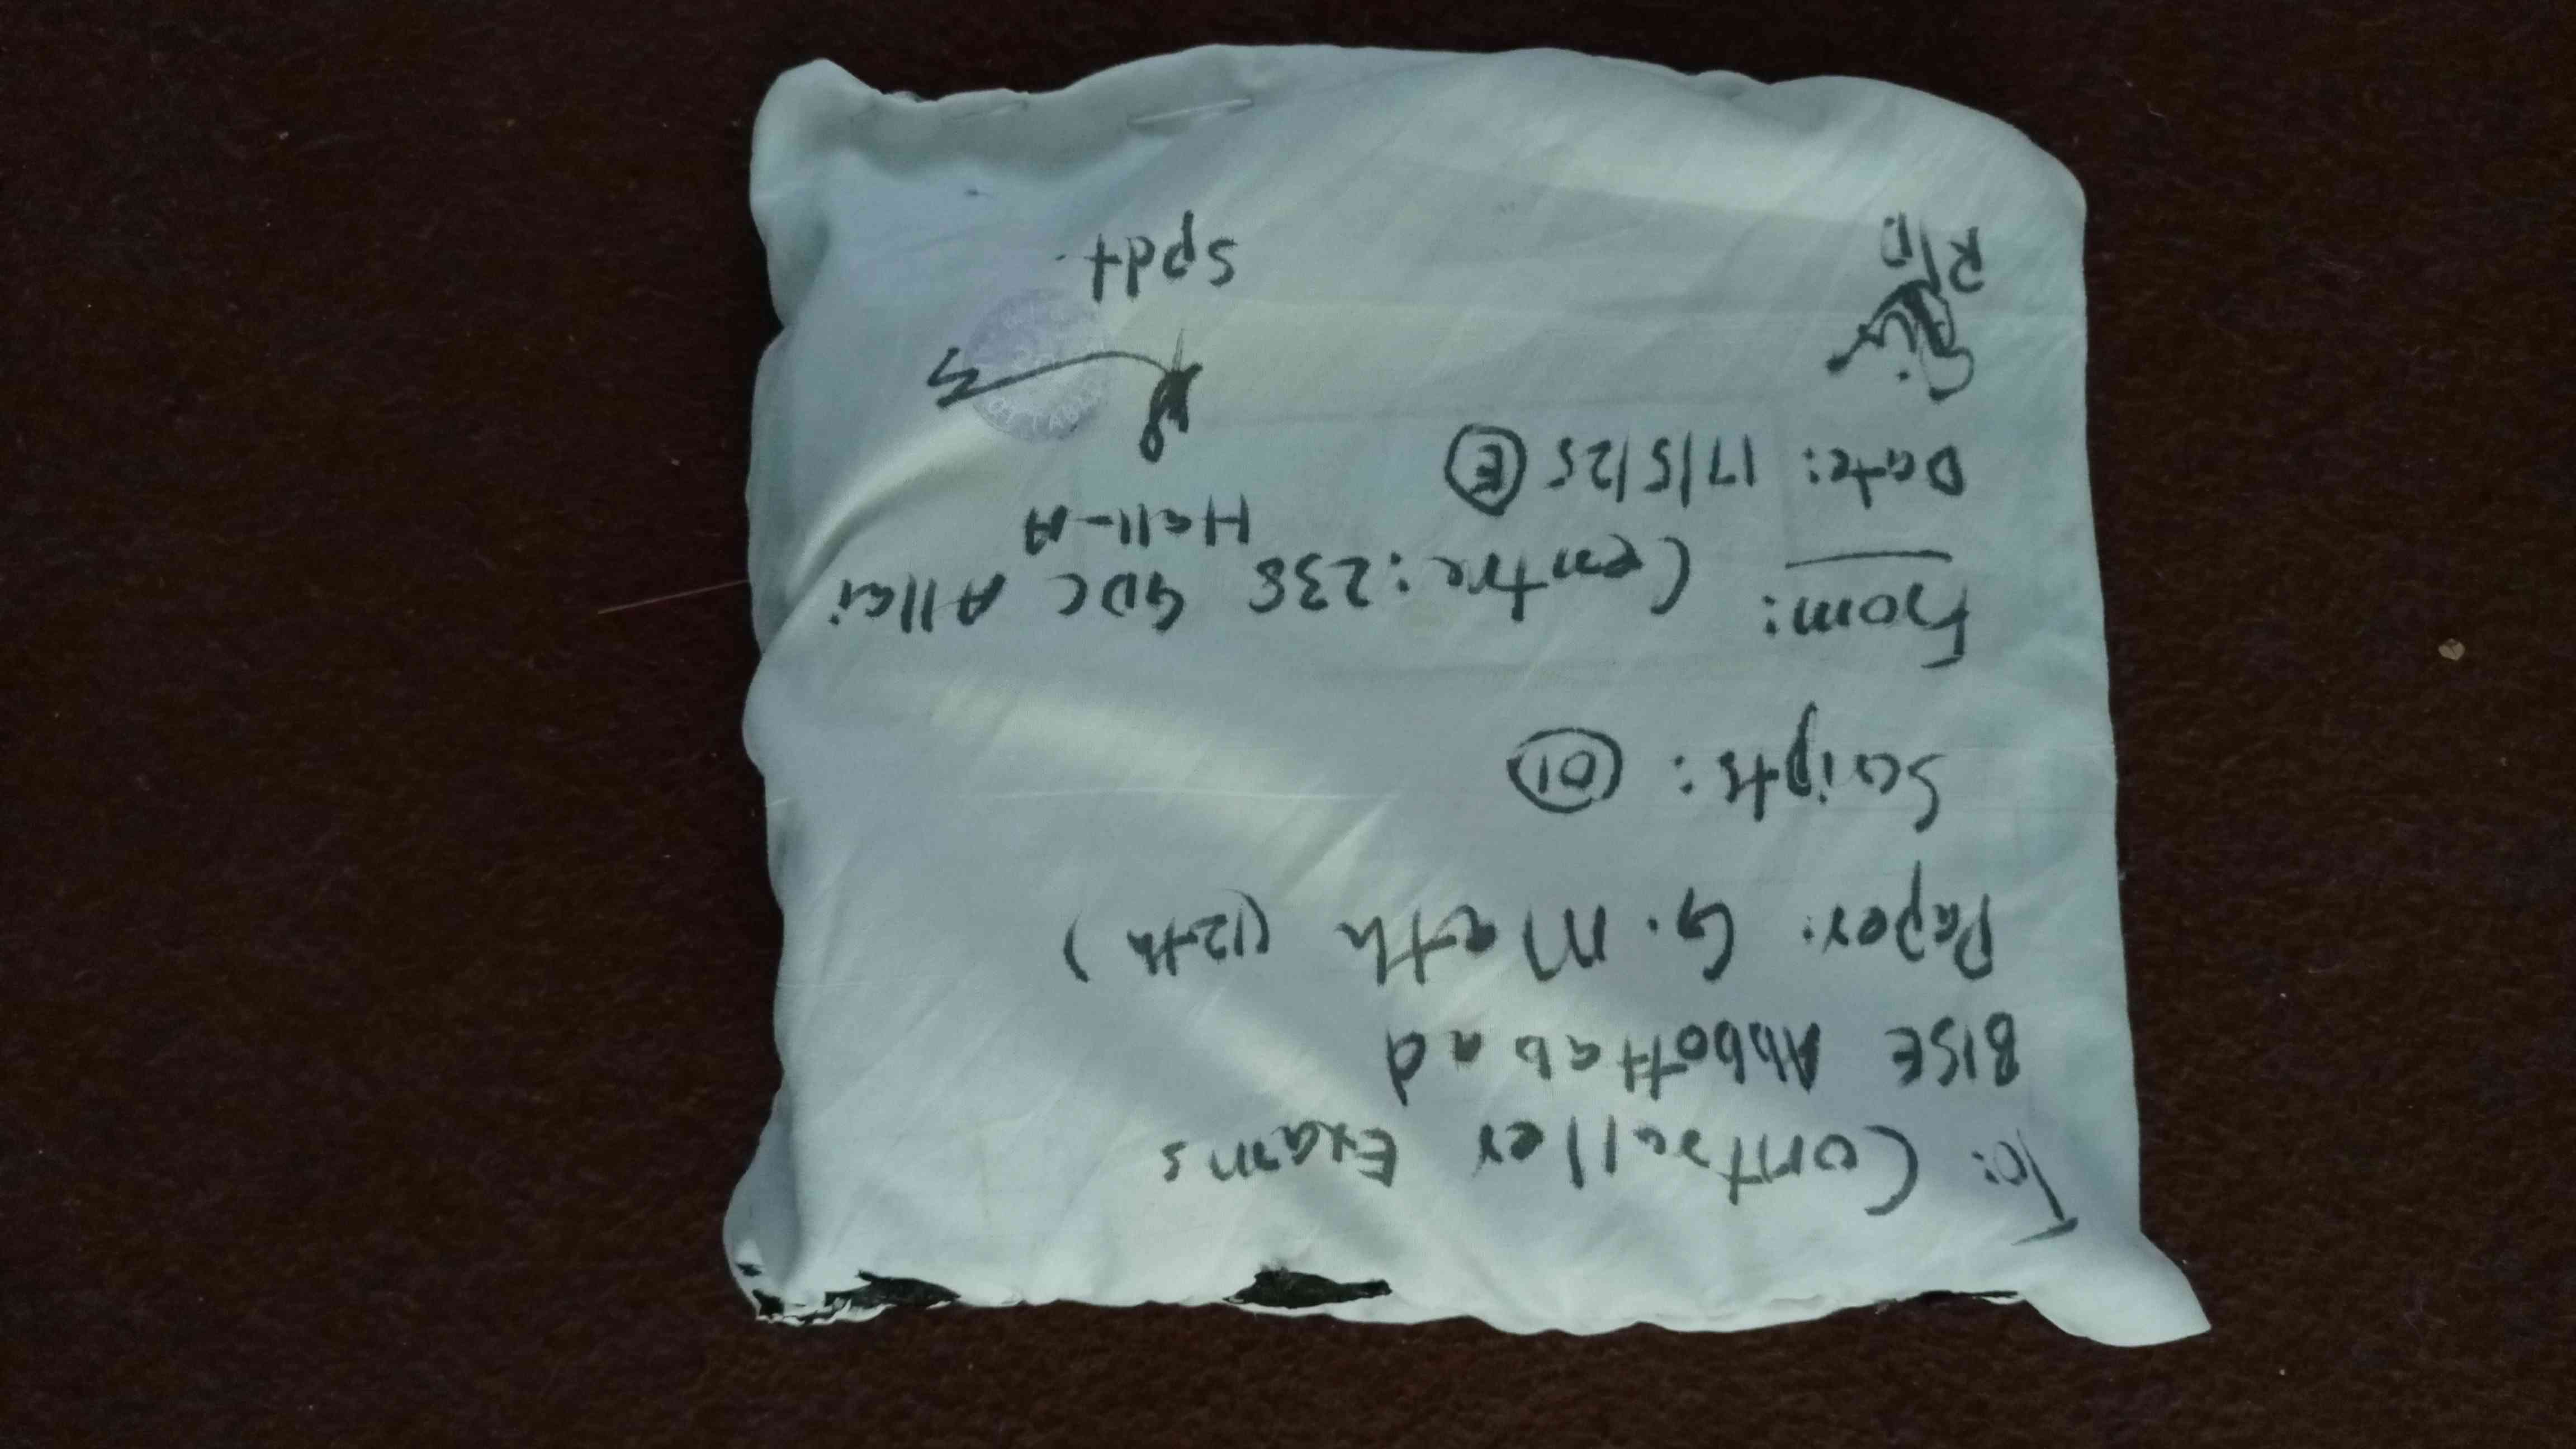 To: Controller Exams
BISE Abbottabad
Paper: G. Math (12th)
Scripts: 01
From: Centre: 238 GDC Allai
Hall-A
Date: 17/5/25 E
R/D
Spdt.